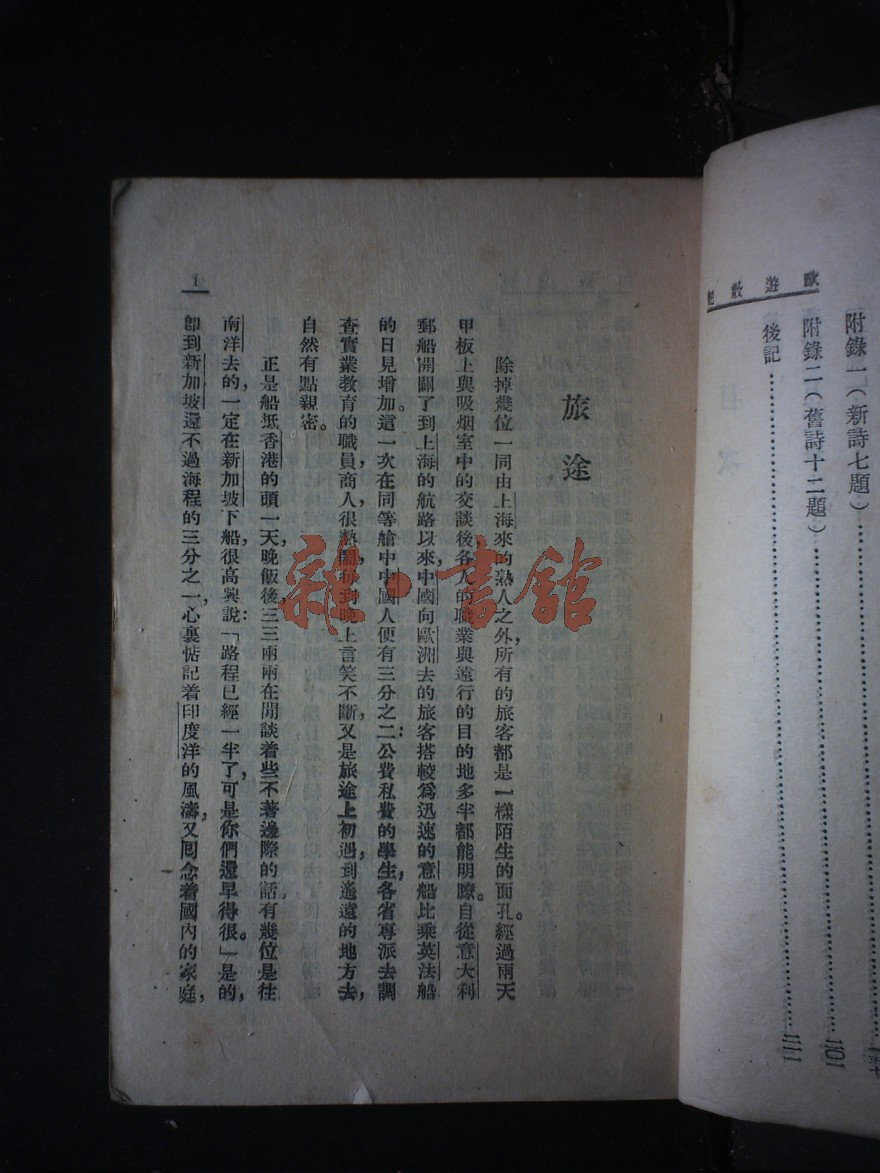 歐遊散記
附錄一(新詩七題)
附錄二(舊詩十二題)……二〇一
後記……二一一
旅途
除掉幾位一同由上海來的熟人之外,所有的旅客都是一樣陌生的面孔。經過兩天
甲板上與吸烟室中的交談後各人的職業與遠行的目的地多半都能明瞭。自從意大利
郵船開闢了到上海的航路以來,中國向歐洲去的旅客搭較爲迅速的意船比乘英法船
的日見增加。這一次在同等艙中中國人便有三分之二:公費私費的學生,各省專派去調
查實業教育的職員,商人,很熱鬧,每到晚上言笑不斷,又是旅途上初遇,到遙遠的地方去,
自然有點親密。
正是船抵香港的頭一天,晚飯後,三三兩兩在閒談着些不著邊際的話,有幾位是往
南洋去的,一定在新加坡下船,很高興說:「路程已經一半了,可是你們還早得很。」是的,
卽到新加坡還不過海程的三分之一,心裏惦記着印度洋的風濤,又囘念着國內的家庭,
1
雜·書館